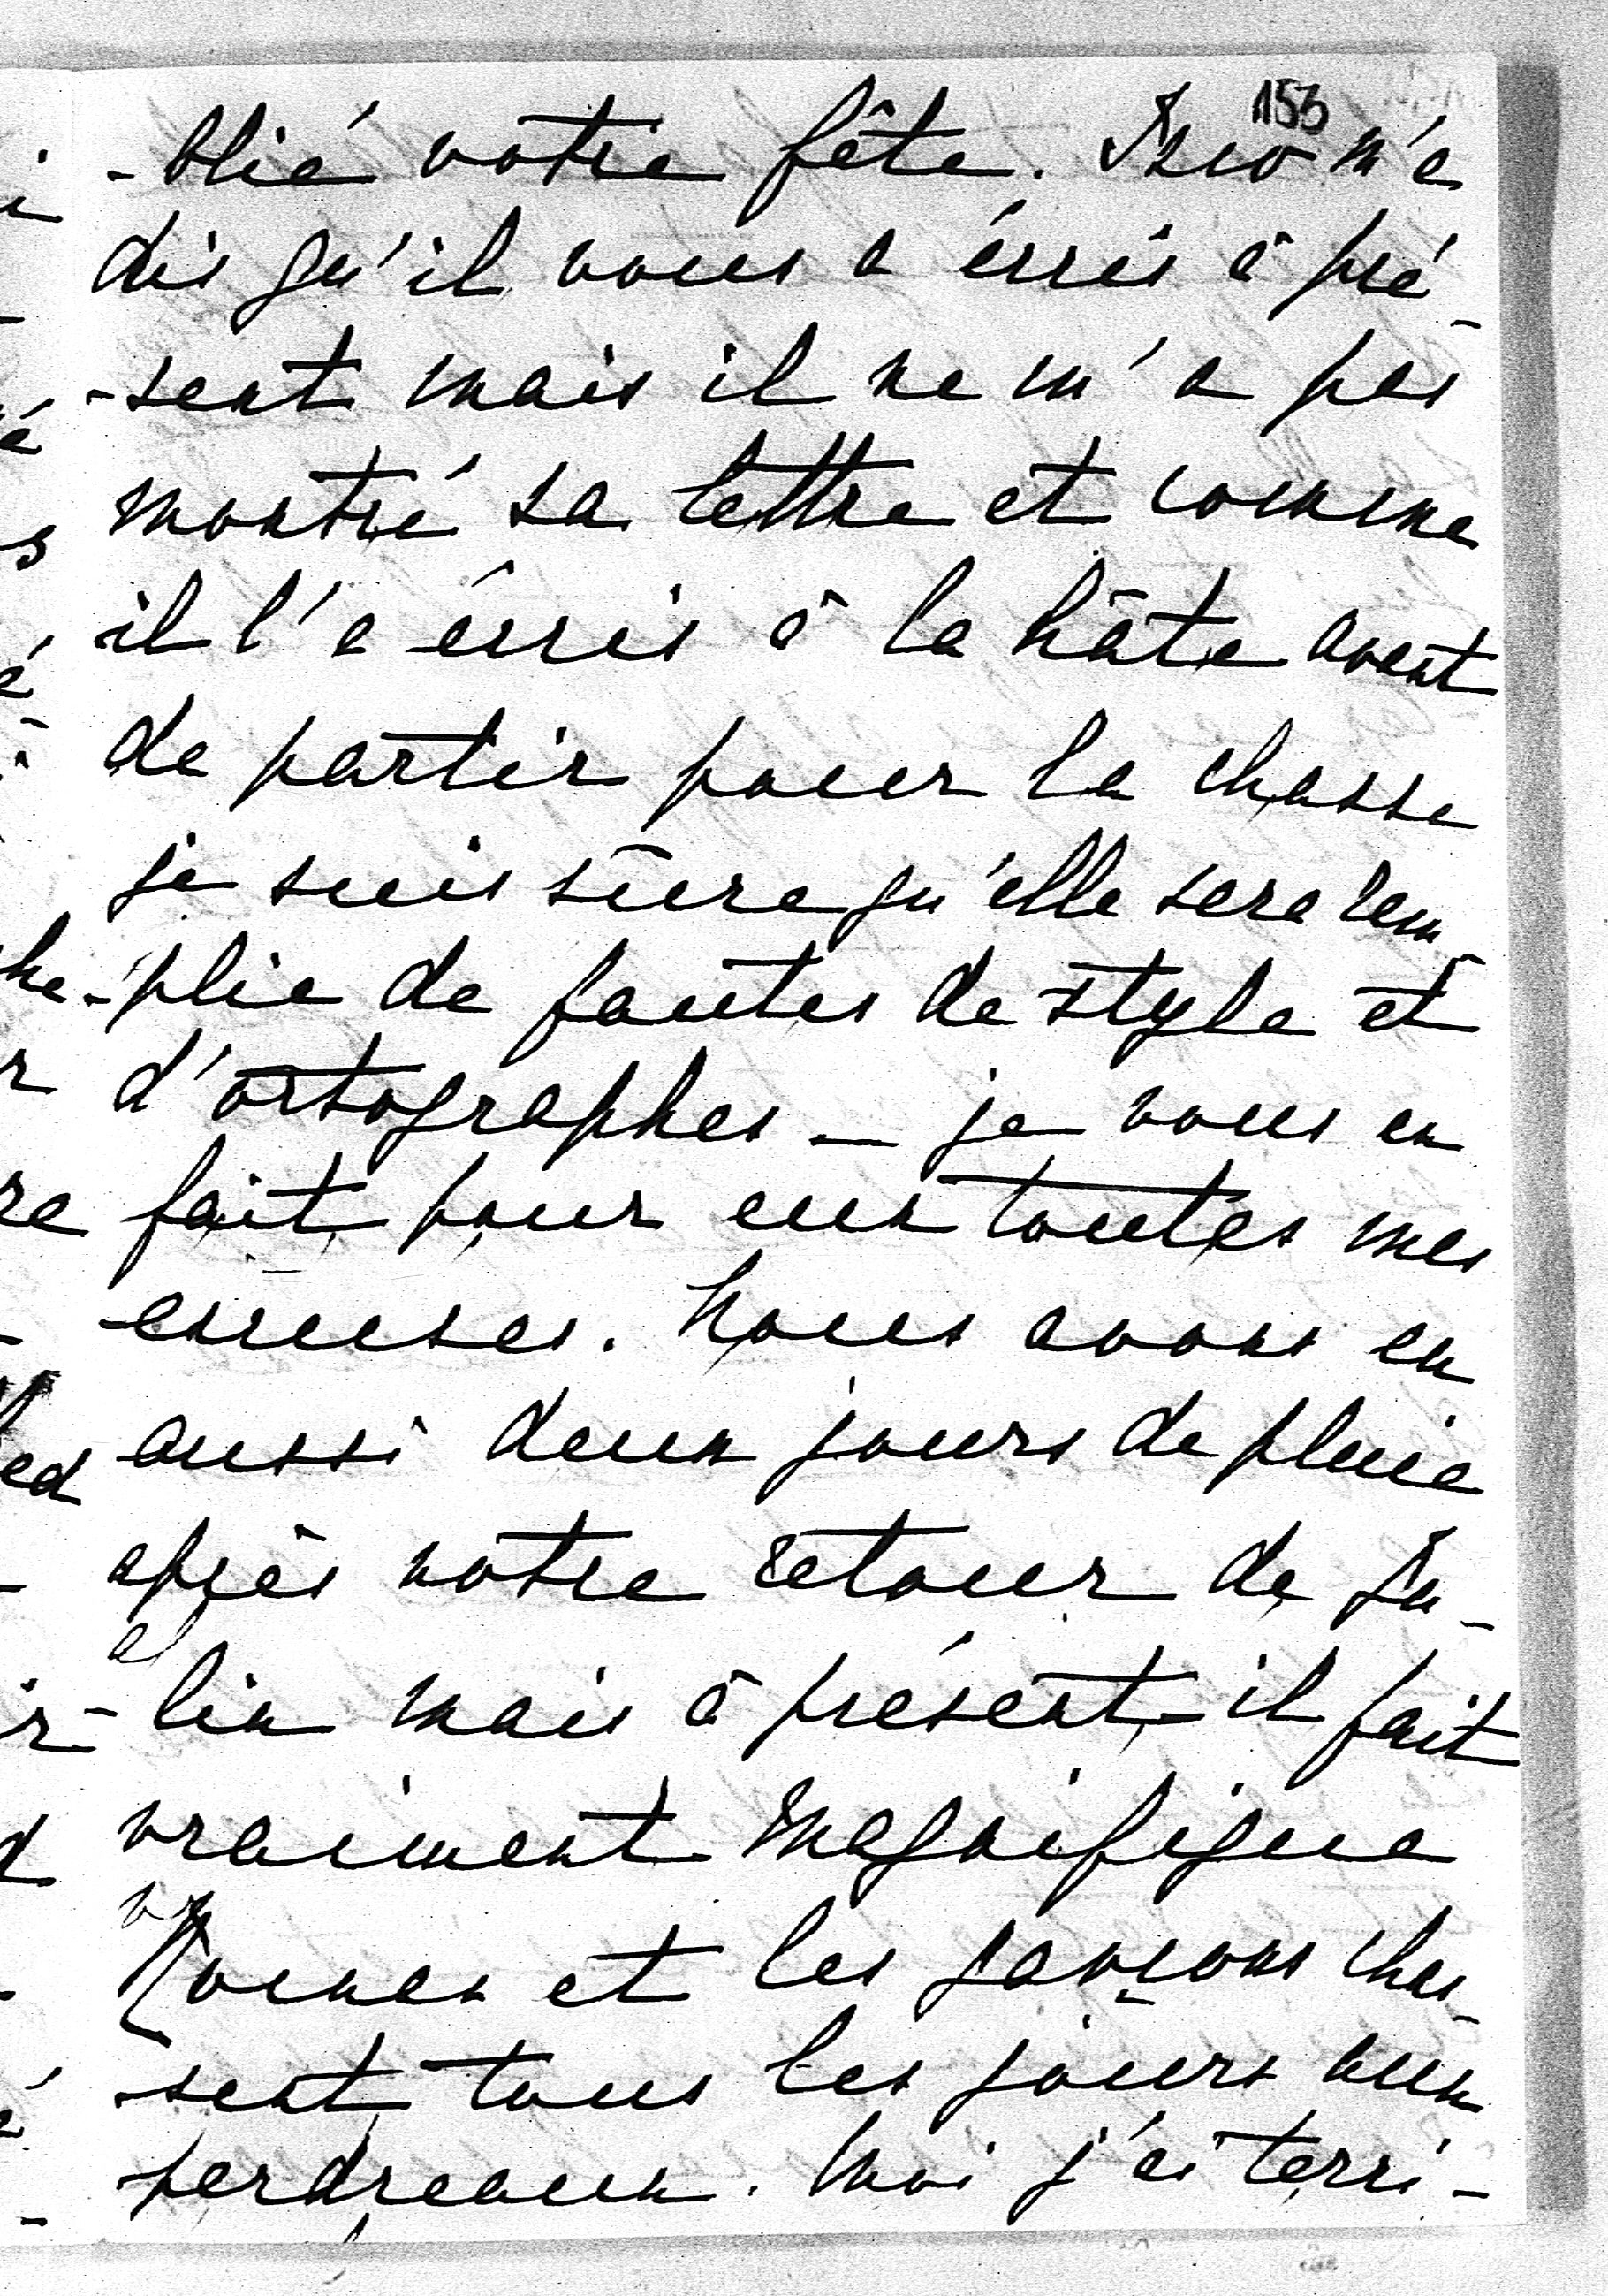 153
-blié votre fête. Izio m'a
dis qu'il vous a écris à pré-
-sent mais il ne m'a pas
montré sa lettre et comme
il l'a écris à la hâte avant
de partir pour la chasse
je suis sûre qu'elle sera rem-
-plie de fautes de style et
d'ortographes — je vous en
fait pour eux toutes mes
excuses. Nous avons eu
aussi deux jours de pluie
après notre retour de Ju-
-lin mais à présent il fait
vraiment magnifique
et les garçons chas-
-sent tous les jours aux
perdreaux. Moi j'ai terri-